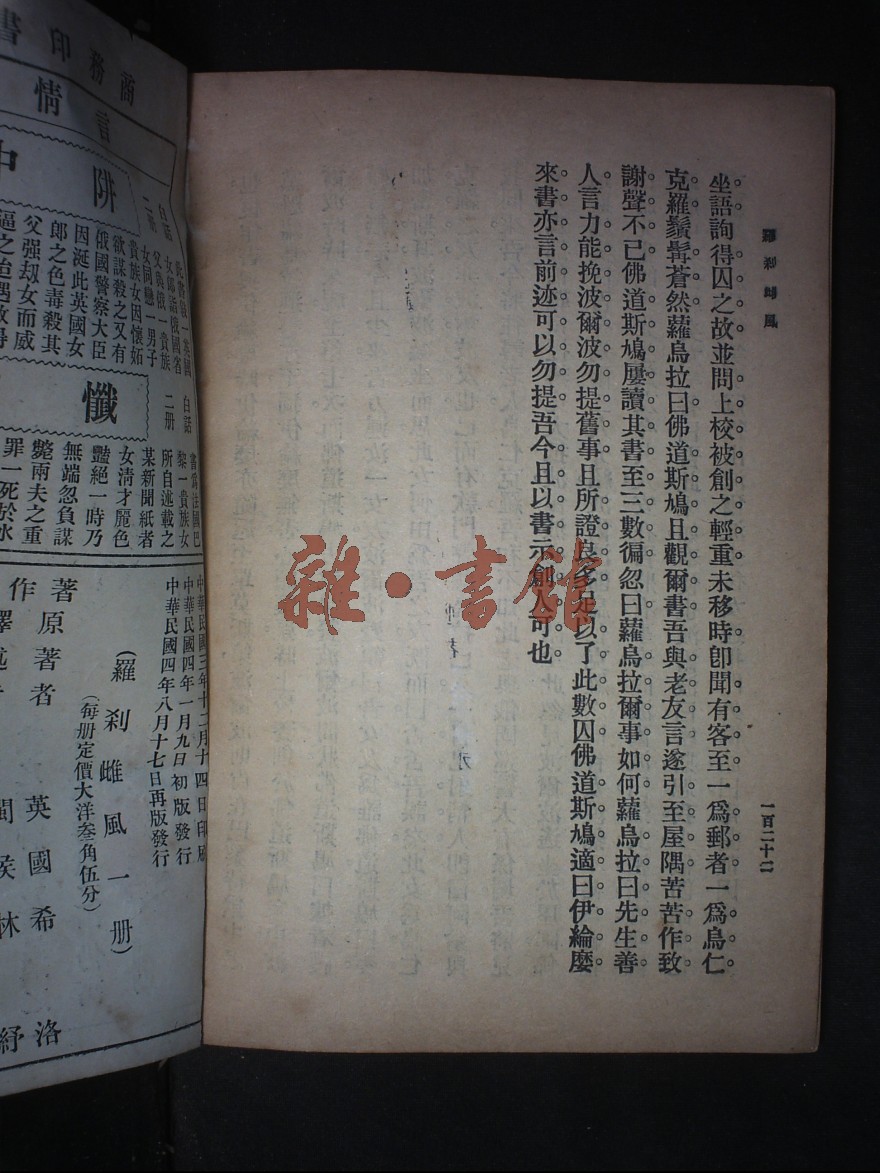 羅刹雌風
一百二十二
坐語詢得囚之故並問上校被創之輕重未移時卽聞有客至一爲郵者一爲烏仁
克羅鬚髯蒼然蘿烏拉曰佛道斯鳩且觀爾書吾與老友言遂引至屋隅苦苦作致
謝聲不已佛道斯鳩屢讀其書至三數徧忽曰蘿烏拉爾事如何蘿烏拉曰先生善
人言力能挽波爾波勿提舊事且所證良多足以了此數囚佛道斯鳩適曰伊綸麼
來書亦言前迹可以勿提吾今且以書示創人可也
雜·書館
商務印書
言情
阱中
白話
二册
此書敍一英國
女郎話俄國省
父與俄一貴族
女同戀一男子
貴族女因懷妬
欲謀殺之又有
俄國警察大臣
因涎此英國女
郎之色毒殺其
父强刧女而威
逼之迨遇救得
懺
白話
二册
書爲法國巴
黎一貴族女
所自述載之
某新聞紙者
女淸才麗色
豔絕一時乃
無端忽負謀
斃兩夫之重
罪一死於水
中華民國三年十二月十四日印刷
中華民國四年一月九日初版發行
中華民國四年八月十七日再版發行
(羅刹雌風一册)
(每册定價大洋叁角伍分)
原著者 英國希洛
閩侯林紓